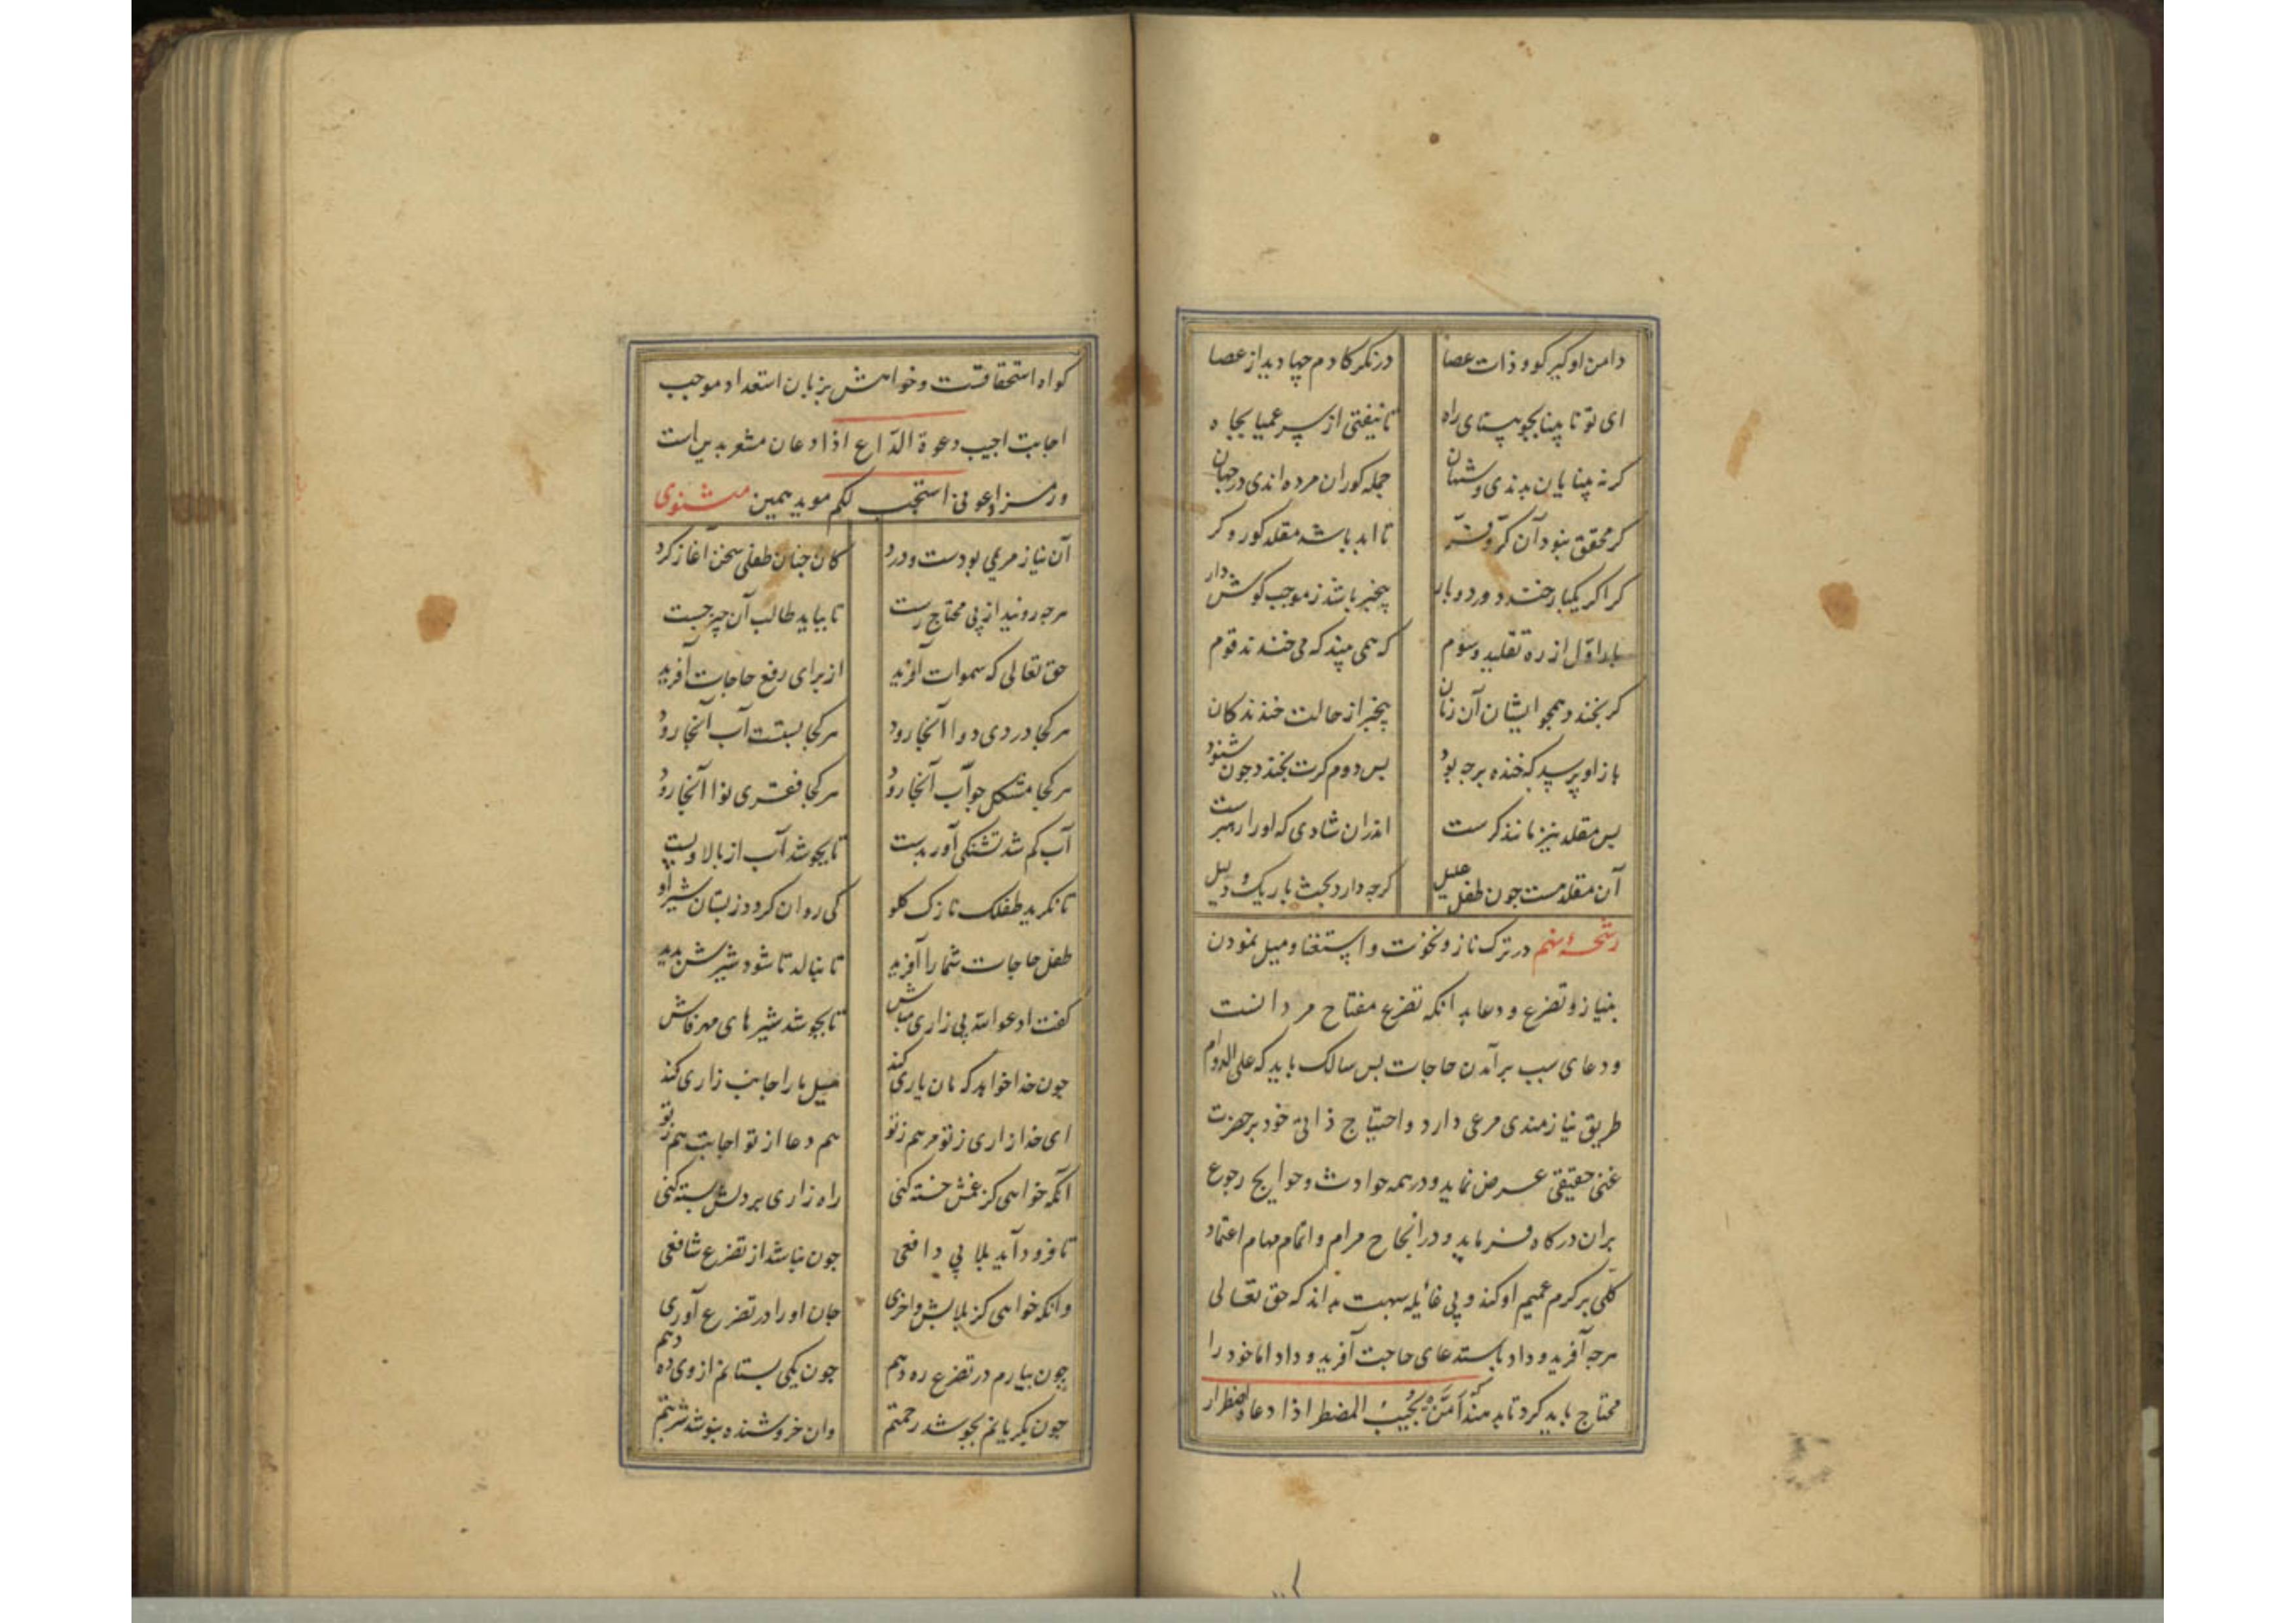 دامن او گیر کو دادت عصا درنکر کادم چها دید از عصا
ای تو نابینا بجو بینای راه تا نیفتی از سر عمیا بجاه
کر نه بینایان بدندی و شهان جمله کوران مرده اندی در جهان
کر محقق نبود آن کرّ و فرّ تا ابد باشد مقلد کور و کر
کر اکر یکبار خندد ور دو بار بیخبر باشد ز موجب کوش دار
بار اوّل از ره تقلید و سوم که همی بیند که می خندند قوم
کر بخندد همجو ایشان آن زمان بیخبر از حالت خندندکان
باز او پرسد که خنده بر جه بود بس دوم کرت بخندد جون شنود
بس مقلد نیز مانند کرست اندران شادی که او را رهبرست
آن مقلد هست جون طفل علیل کرجه دارد بحث باریک و دلیل
رشحهٔ نهم در ترک ناز و نخوت و استغنا و میل نمودن
بنیاز و تضرع و دعا بدانکه تضرع مفتاح مرداتست
ودعای سبب برآمدن حاجات بس سالک باید که علی الدوام
طریق نیازمندی مرعی دارد و احتیاج ذاتی خود بر حضرت
غنی حقیقی عرض نماید و در همه حوادث و حوایج رجوع
بران درکاه فرماید و در انجاح مرام و اتمام مهام اعتماد
کلی بر کرم عمیم او کند و بی غائله شبهت بداند که حق تعالی
هرجه آفرید و داد باستدعای حاجت آفرید و داد اما خود را
محتاج باید کرد تا بدهند اَمَّنْ یُجِیْبُ المضطر اذا دعاه اضطرار
کواه استحقاقست و خواهش بزبان استعداد موجب
اجابت اجیب دعوة الدّاع اذا دعان مشعر بدین است
ورمز ادعونی استجب لکم موید همین مثنوی
آن نیاز مریمی بودست و درد کان جنان طفلی سخن آغاز کرد
هرجه روئید از پی محتاج رست تا بیابد طالب آن چیز جست
حق تعالی که سموات آفرید از برای رفع حاجات آفرید
هر کجا دردی دوا آنجا رود هر کجا بستست آب آنجا رود
هر کجا مشکل جواب آنجا رود هر کجا فقری نوا آنجا رود
آب کم شد تشنکی آور بدست تا بجوشد آب از بالا و بست
تا نکرید طفلک نازک کلو کی روان کردد ز بستان شیر او
طفل حاجات شما را آفرید تا بنالد تا شود شیرش بدید
کفت ادعوا الله بی زاری مباش تا بجوشد شیرهای مهرفاش
جون خدا خواهد که مان یاری کند میل ما را جانب زاری کند
ای خدا زاری ز تو مرهم ز تو هم دعا از تو اجابت هم ز تو
آنکه خواهی کز غمش خسته کنی راه زاری بر دلش بسته کنی
تا فرود آید بلا بی دافعی جون نباشد از تضرع شافعی
وانکه خواهی کز بلایش واخری جان او را در تضرع آوری
جون بیارم در تضرع ره دهم جون یکی بستانم از وی ده دهم
جون بکریانم بجوشد رحمتم وان خروشنده بنوشد شربتم